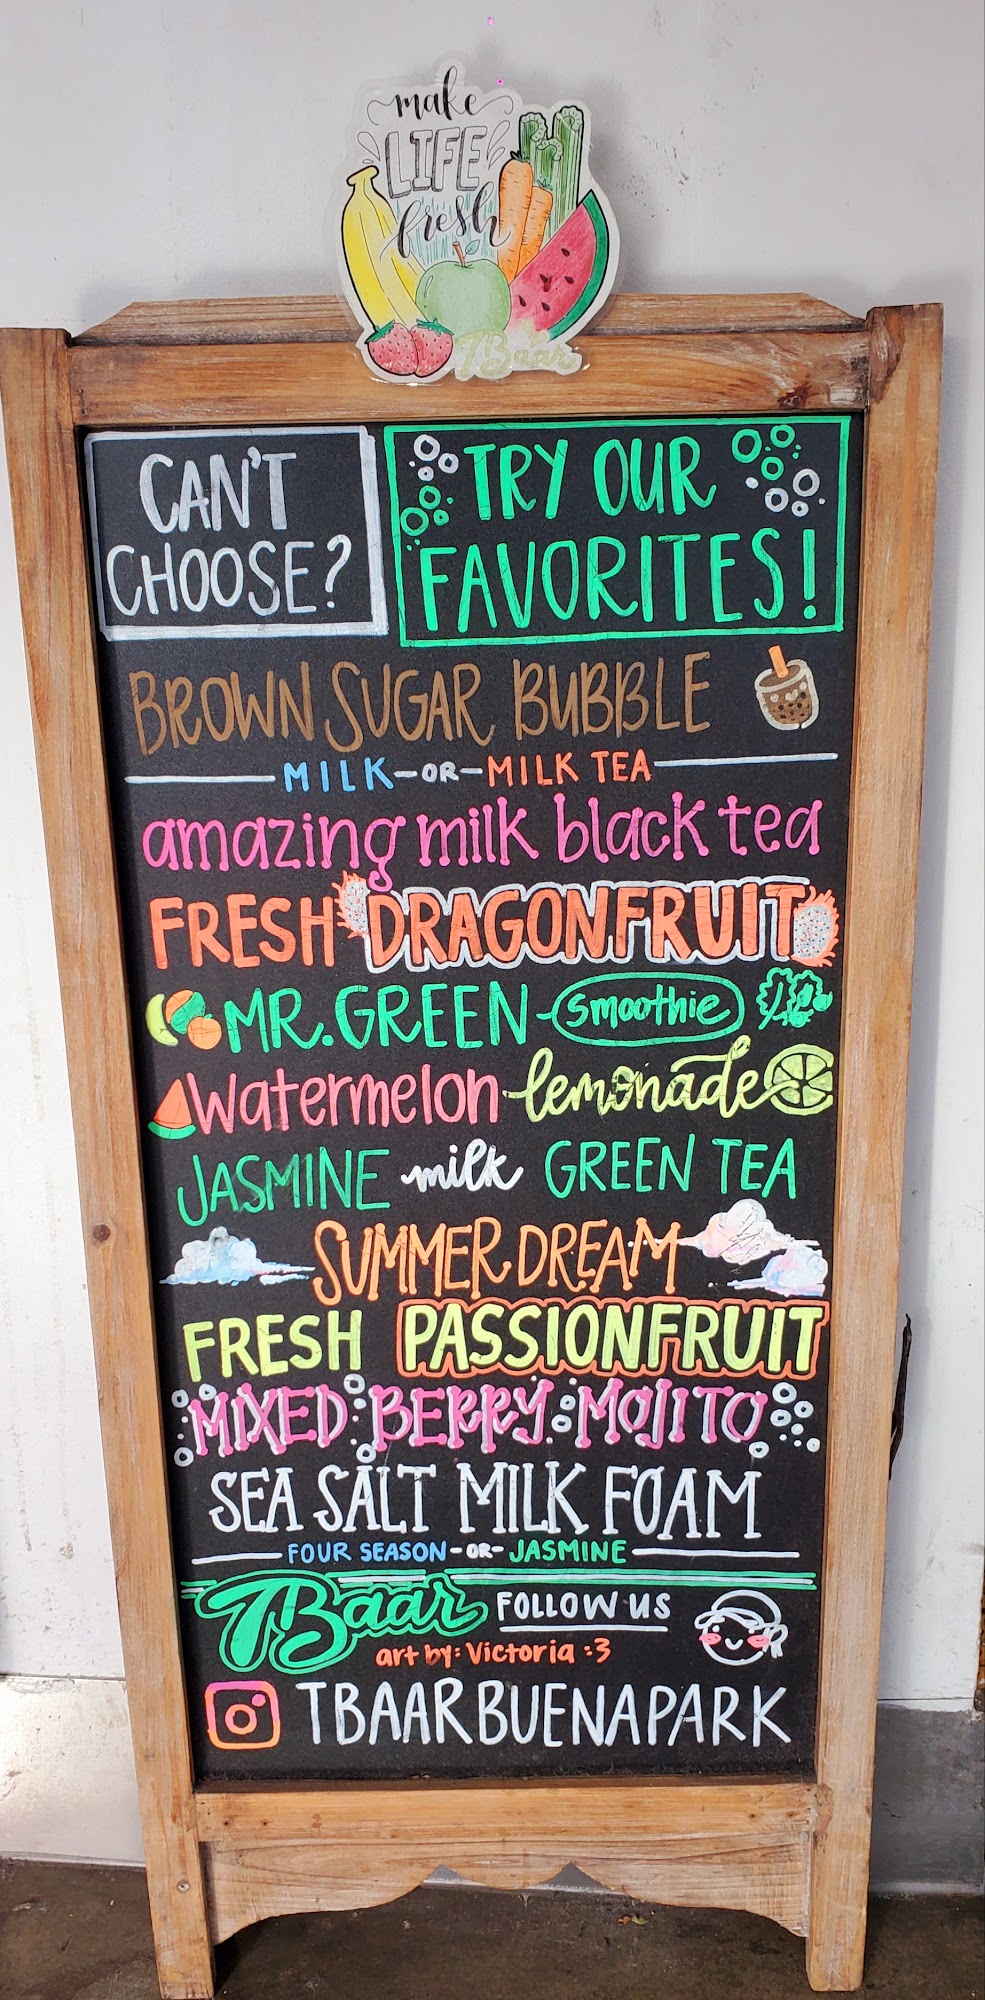 make
LIFE
fresh
7Baar
CAN'T
CHOOSE?
TRY OUR
FAVORITES!
BROWN SUGAR BUBBLE
MILK-OR-MILK TEA
amazing milk black tea
FRESH DRAGONFRUIT
MR. GREEN - smoothie
watermelon lemonade
JASMINE milk GREEN TEA
SUMMER DREAM
FRESH PASSIONFRUIT
MIXED BERRY MOJITO
SEA SALT MILK FOAM
FOUR SEASON-OR-JASMINE
7Baar FOLLOW US
art by: Victoria :3
TBAARBUENAPARK